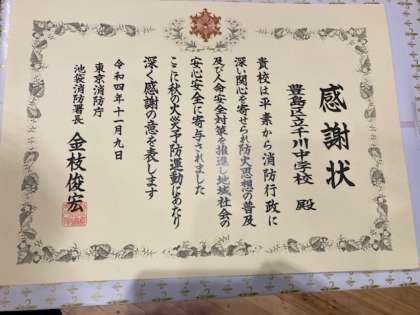 感謝状
豊島区立千川中学校 殿
貴校は平素から消防行政に
深い関心を寄せられ防火思想の普及
及び人命安全対策を推進し地域社会の
安心安全に寄与されました
ここに秋の火災予防運動にあたり
深く感謝の意を表します
令和四年十一月九日
東京消防庁
池袋消防署長 金枝俊宏